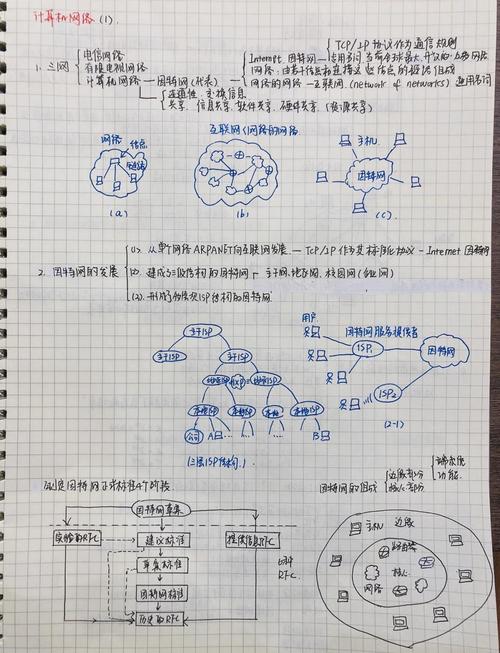 计算机网络 (1).
1. 三网
电信网络
有线电视网络
计算机网络 — 因特网(代表)
TCP/IP 协议作为通信规则
Internet 因特网 — 专用名词 当前全球最大、开放的、互联网
网络: 由若干结点和连接这些结点的链路组成
网络的网络 — 互联网 (network of networks) 通用名词
连通性: 交换信息
共享: 信息共享, 软件共享, 硬件共享 (资源共享)
网络
结点
链路
(a)
互联网(网络的网络)
(b)
主机
因特网
(c)
2. 因特网的发展
(1). 从单个网络 ARPANET 向互联网发展. — TCP/IP 作为其标准化协议 - Internet 因特网
(2). 建成三级结构的因特网 主干网, 地区网, 校园网 (企业网)
(2). 形成了多层次ISP结构的因特网
主干ISP
主干ISP
主干ISP
地区ISP
IXP
地区ISP
本地ISP
本地ISP
本地
本地ISP
公司
A
B
(三层ISP结构.)
用户
因特网服务提供者
ISP1
因特网
ISP2
(2-1)
制定因特网正式标准4个阶段
因特网草案
实验的RFC
建议标准
提供信息RFC
草案标准
因特网标准
历史的RFC
RFC.
因特网的组成
边缘部分
核心部分
功能.
主机
边缘
路由器
核心
网络